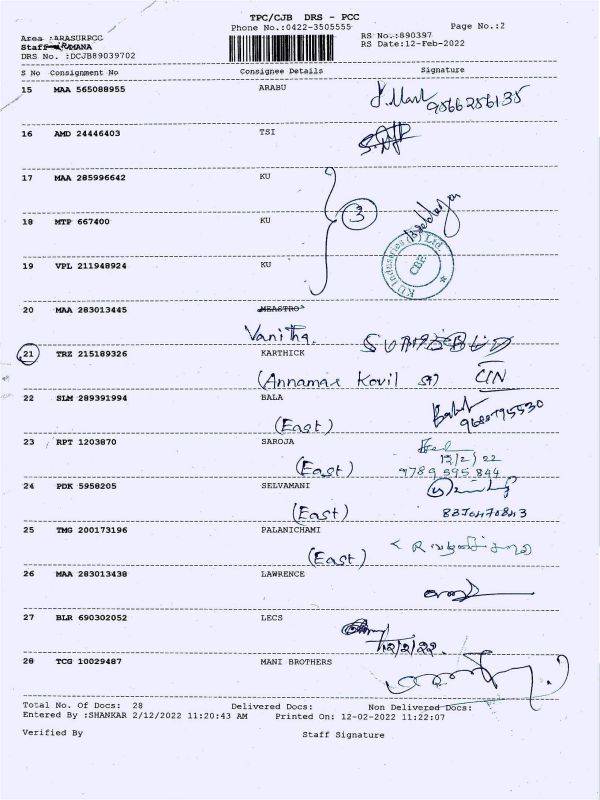 TPC/CJB DRS - PCC
Phone No.:0422-3505555
Page No.:2
Area :ARASURPCC
RS No.:890397
Staff :RAMANA
RS Date:12-Feb-2022
DRS No. :DCJB89039702
S No Consignment No Consignee Details Signature
15 MAA 565088955 ARABU
9566256135
16 AMD 24446403 TSI
17 MAA 285996642 KU
3
18 MTP 667400 KU
KU Industries (P) Ltd.
CBE
19 VPL 211948924 KU
20 MAA 283013445 MEASTRO
Vanitha.
21 TRZ 215189326 KARTHICK
(Annamar Kovil st)
22 SLM 289391994 BALA
(East)
23 RPT 1203870 SAROJA
12/2/22
(East) 9789 595 844
24 PDK 5958205 SELVAMANI
(East)
25 TMG 200173196 PALANICHAMI
(East)
26 MAA 283013438 LAWRENCE
27 BLR 690302052 LECS
12/2/22.
28 TCG 10029487 MANI BROTHERS
Total No. Of Docs: 28 Delivered Docs: Non Delivered Docs:
Entered By :SHANKAR 2/12/2022 11:20:43 AM Printed On: 12-02-2022 11:22:07
Verified By Staff Signature